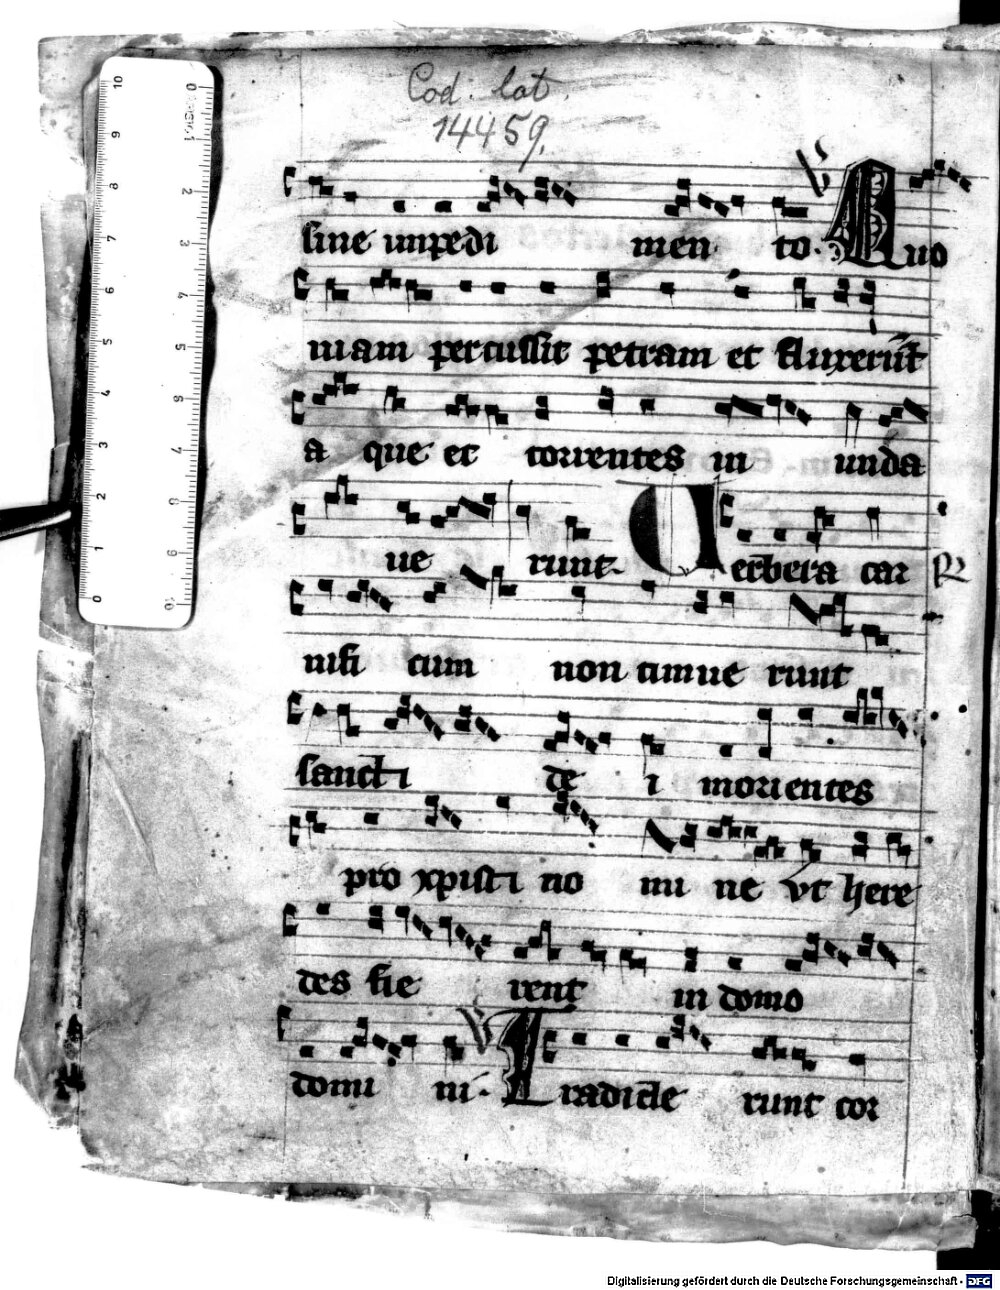 Cod. lat.
14459.
sine impedi men to. Quo
niam percussit petram et fluxerūt
a que et torrentes in unda
ue runt. Uerbera car R
nifi cum non timue runt
sancti de i morientes
pro xpisti no mi ne ut here
des fie rent in domo
domi ni. V Tradide runt cor
Digitalisierung gefördert durch die Deutsche Forschungsgemeinschaft - DFG